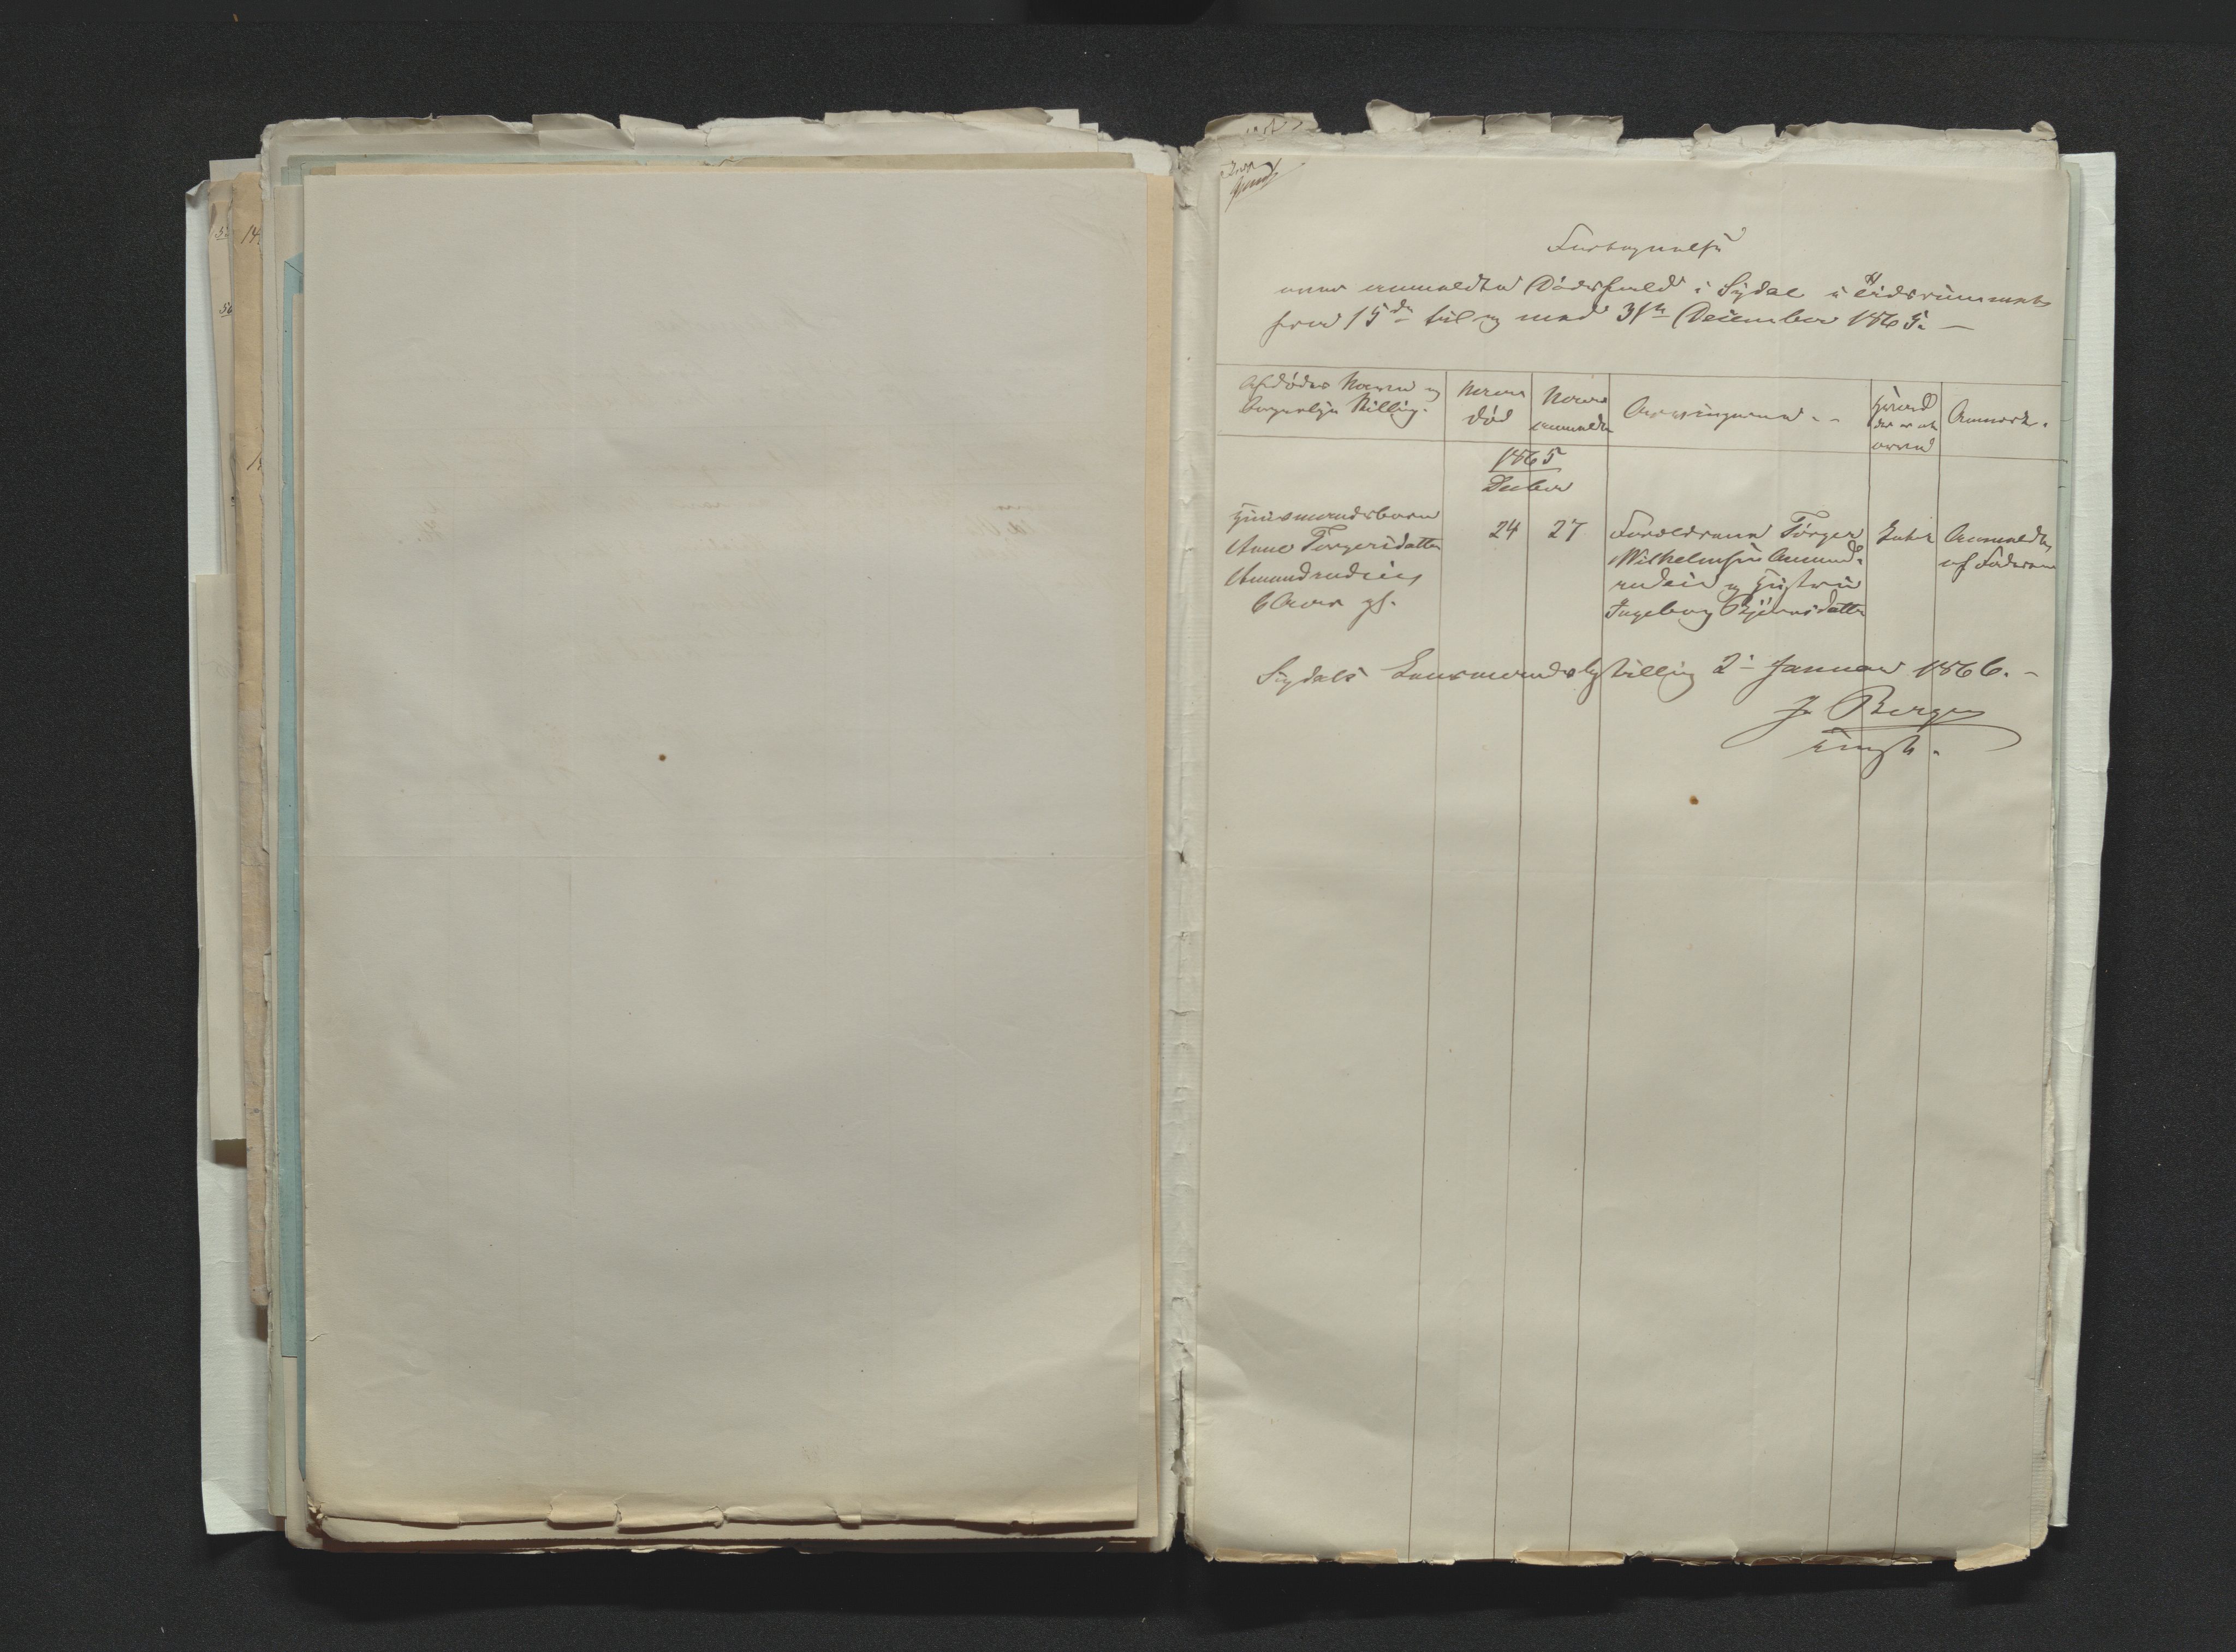 Fortegnelse
over anmeldte Dødsfald i Sigdal i Tidsrummet
fra 15de til og med 31te December 1865. —
Afdødes Navn og
borgerlige Stilling.
Naar
død
Naar
anmeldt
Arvingerne. -
hvad
der er
Anmærk.
1865
Decbr
Huusmandsbarn
Anne Torgersdatter
Amundrudeie
6 Aar gl.
24
27
Forældrene Torger
Wilhelmsen Amund-
rudeie og Hustru
Ingeborg Bjørnsdatter
Intet
Anmeldt
af Faderen
Sigdals Lensmandsbestilling 2 Januar 1866. -
J. Berger